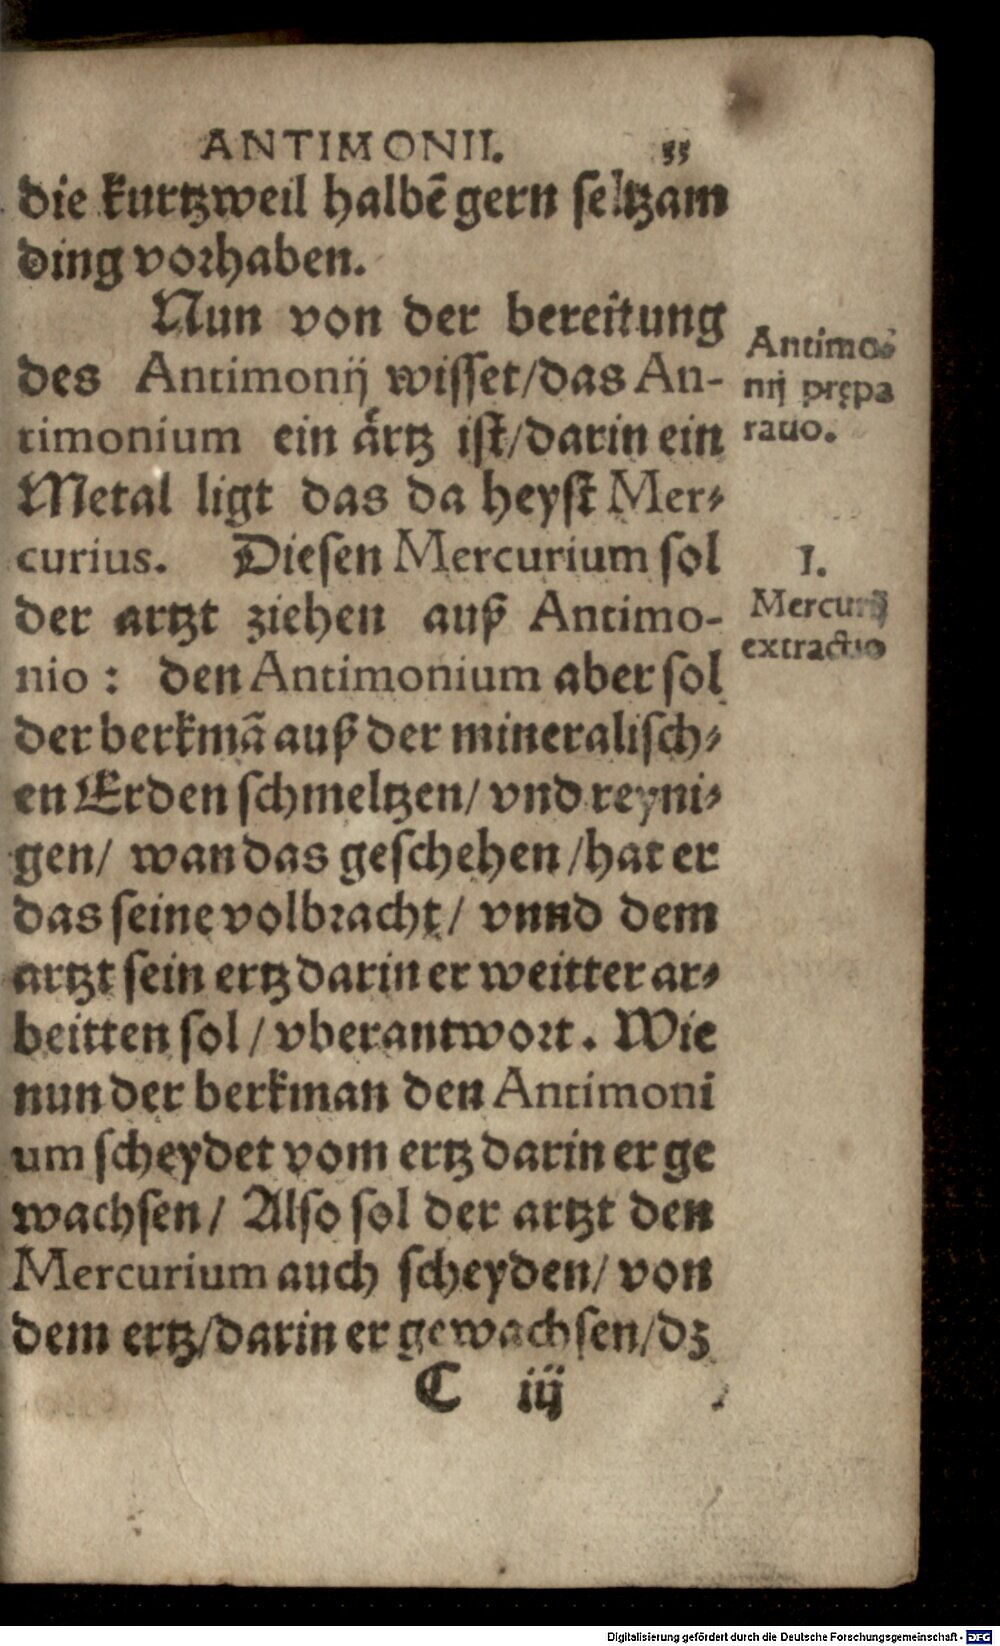 ANTIMONII. 35
die kurtzweil halbẽ gern seltzam
ding vorhaben.
Nun von der bereitung
des Antimonij wisset/das An-
timonium ein aͤrtz ist/darin ein
Metal ligt das da heyst Mer-
curius. Diesen Mercurium sol
der artzt ziehen auß Antimo-
nio : den Antimonium aber sol
der berkmã auß der mineralisch-
en Erden schmeltzen/ vnd reyni-
gen/ wan das geschehen /hat er
das seine volbracht/ vnnd dem
artzt sein ertz darin er weitter ar-
beitten sol / vberantwort. Wie
nun der berkman den Antimoni
um scheydet vom ertz darin er ge
wachsen/ Also sol der artzt den
Mercurium auch scheyden/ von
dem ertz/darin er gewachsen/dz
C iij
Antimo-
nij prępa
ratio.
1.
Mercurij
extractio
Digitalisierung gefördert durch die Deutsche Forschungsgemeinschaft - DFG